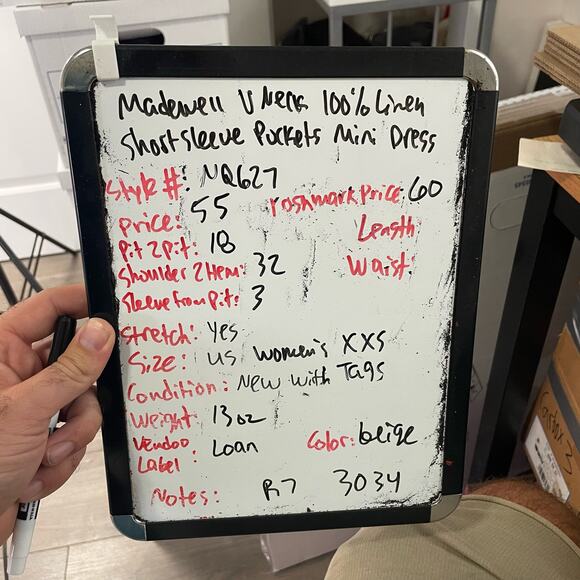 Madewell V Neck 100% Linen
Short sleeve Pockets Mini Dress
Style #: NQ627
Poshmark Price: 60
Price: 55
Length:
Pit 2 pit: 18
Waist:
Shoulder 2 Hem: 32
Sleeve from pit: 3
Stretch: Yes
Size: US Women's XXS
Condition: New with Tags
Weight: 13oz
Vendoo Label: Loan
Color: beige
Notes: R7 3034